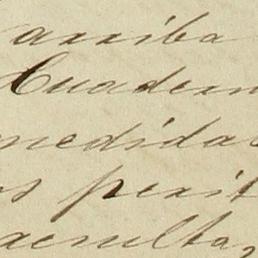 arriba
Cuadern
medidas
os perit
resulta